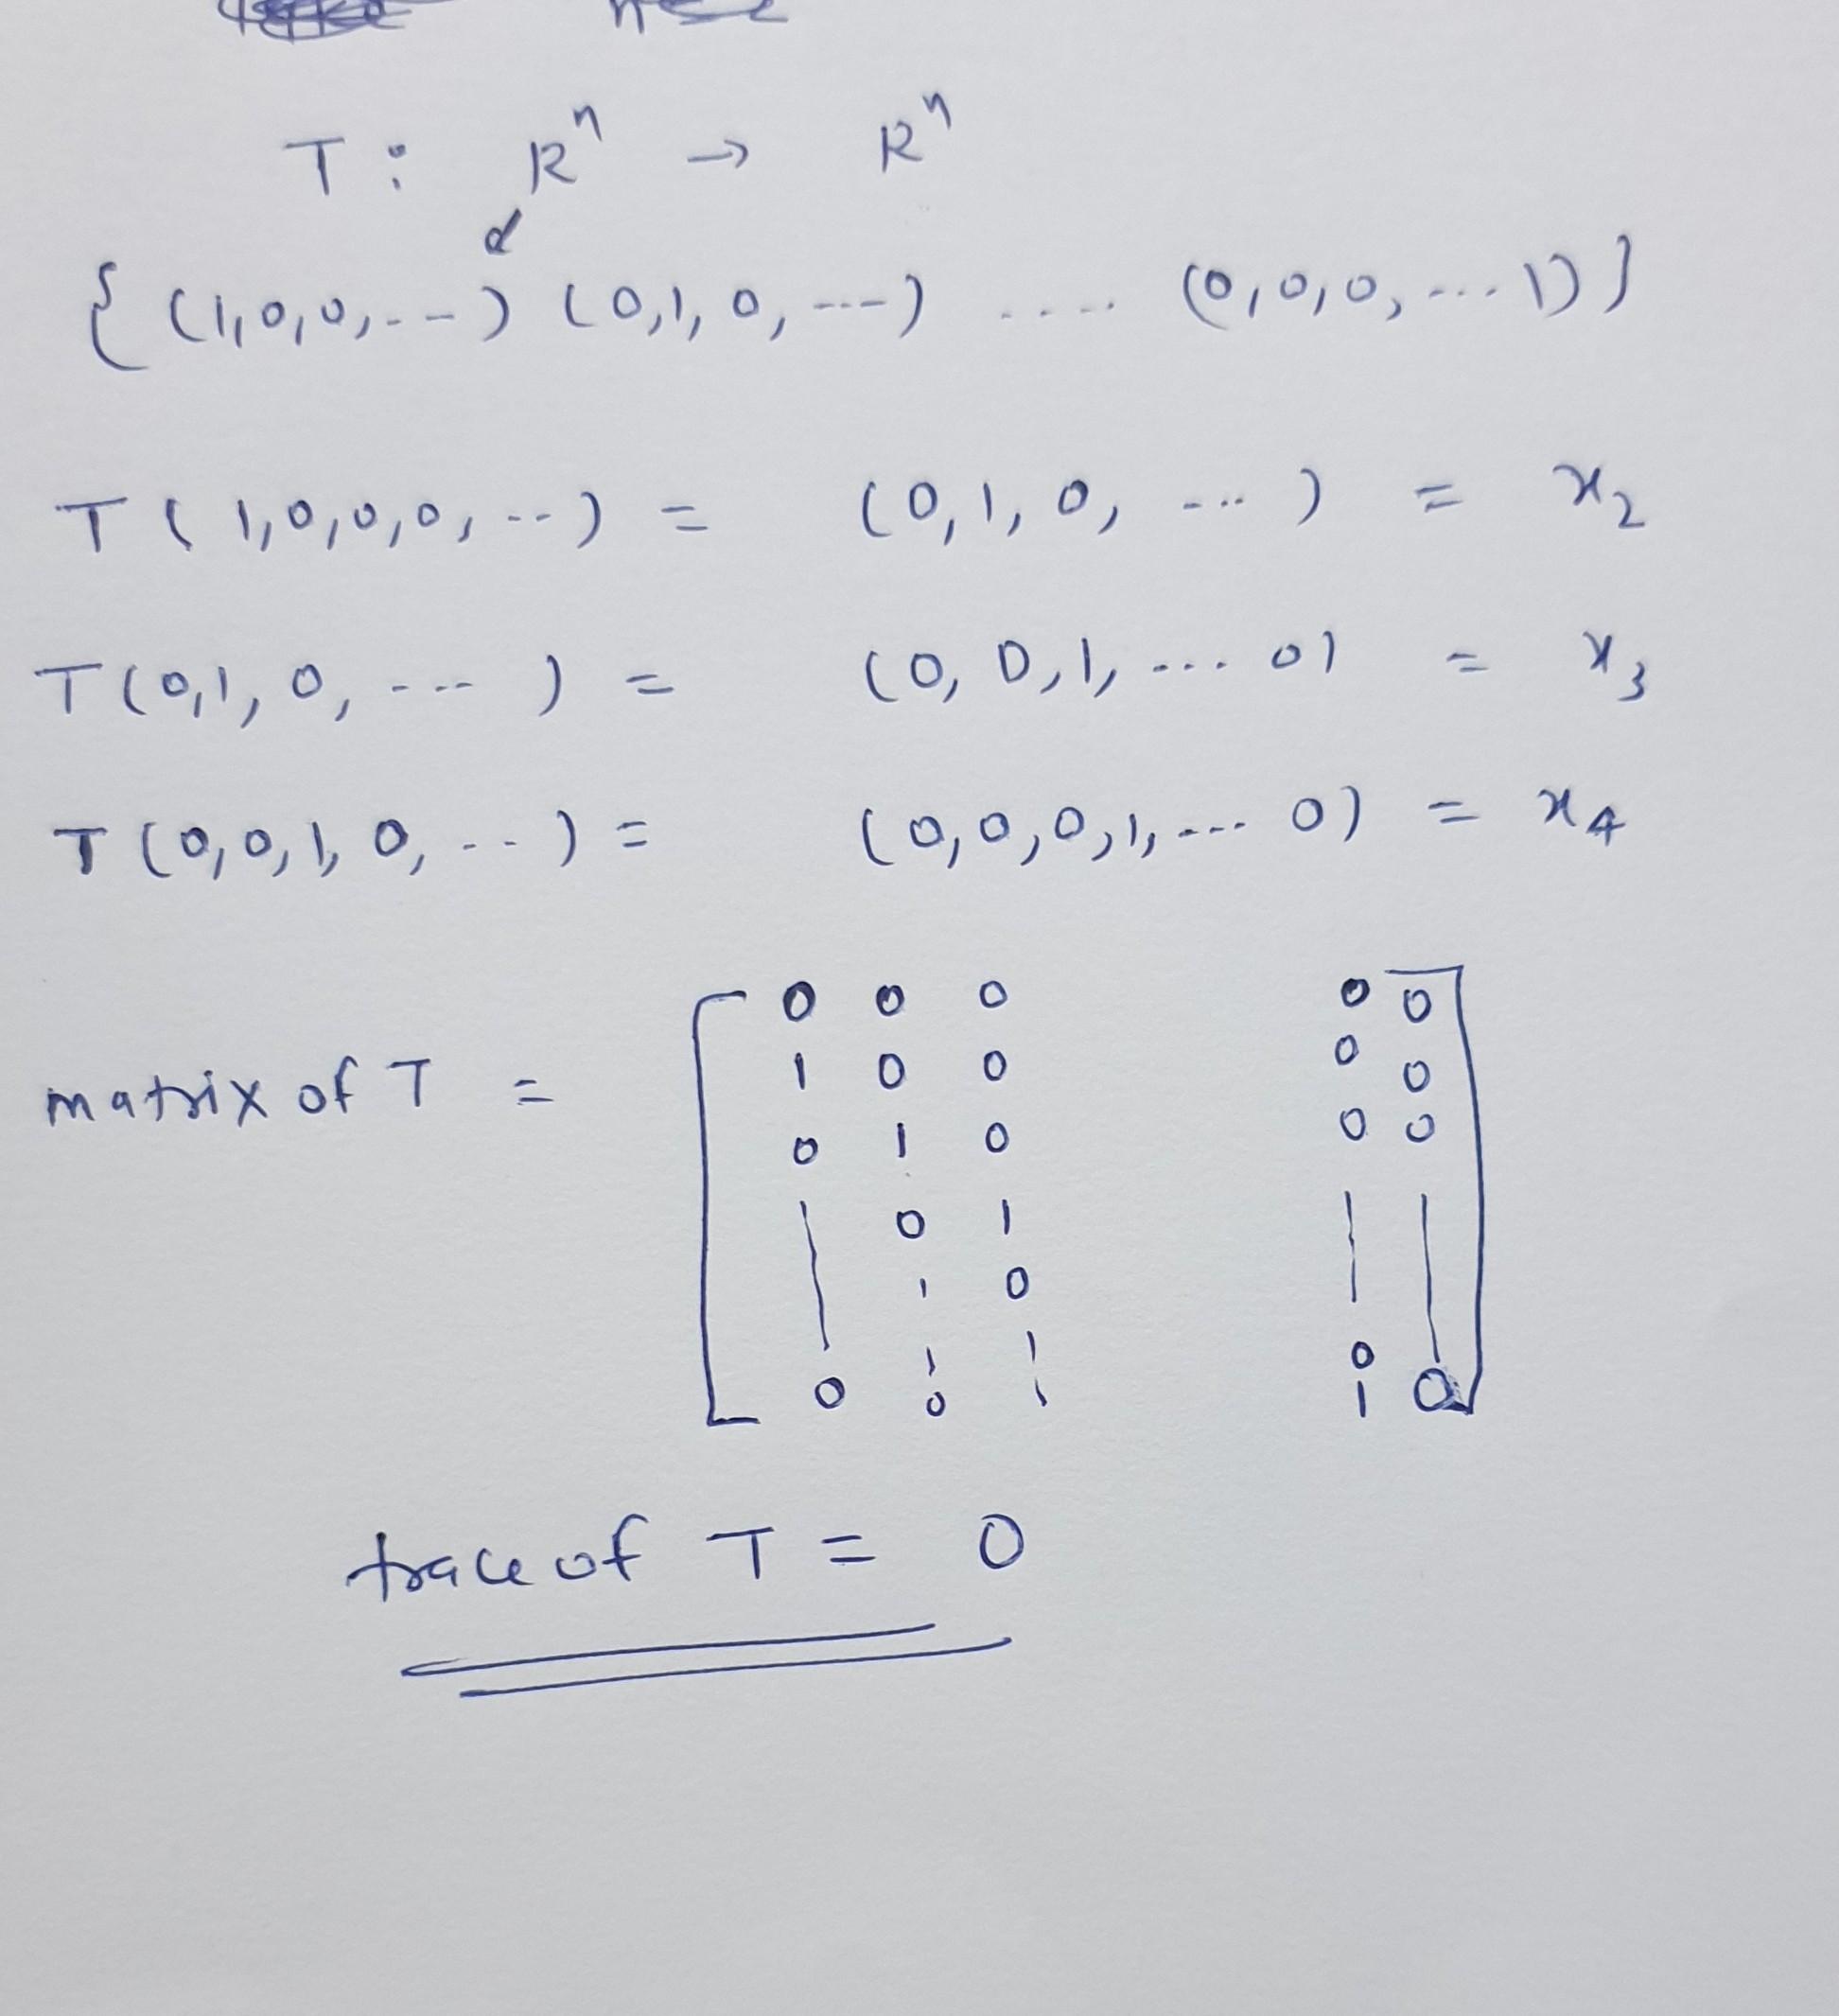 T : R^n → R^n
{ (1,0,0,---) (0,1,0,---) .... (0,0,0,...1) }
T ( 1,0,0,0, --) = (0,1,0, ---) = x_2
T (0,1,0, ---) = (0,0,1, ... 0) = x_3
T (0,0,1,0, ---) = (0,0,0,1, --- 0) = x_4
0 0 0 0 0
1 0 0 0 0
matrix of T =
0 1 0 0 0
0 1
0
0
0 0 1 0
trace of T = 0